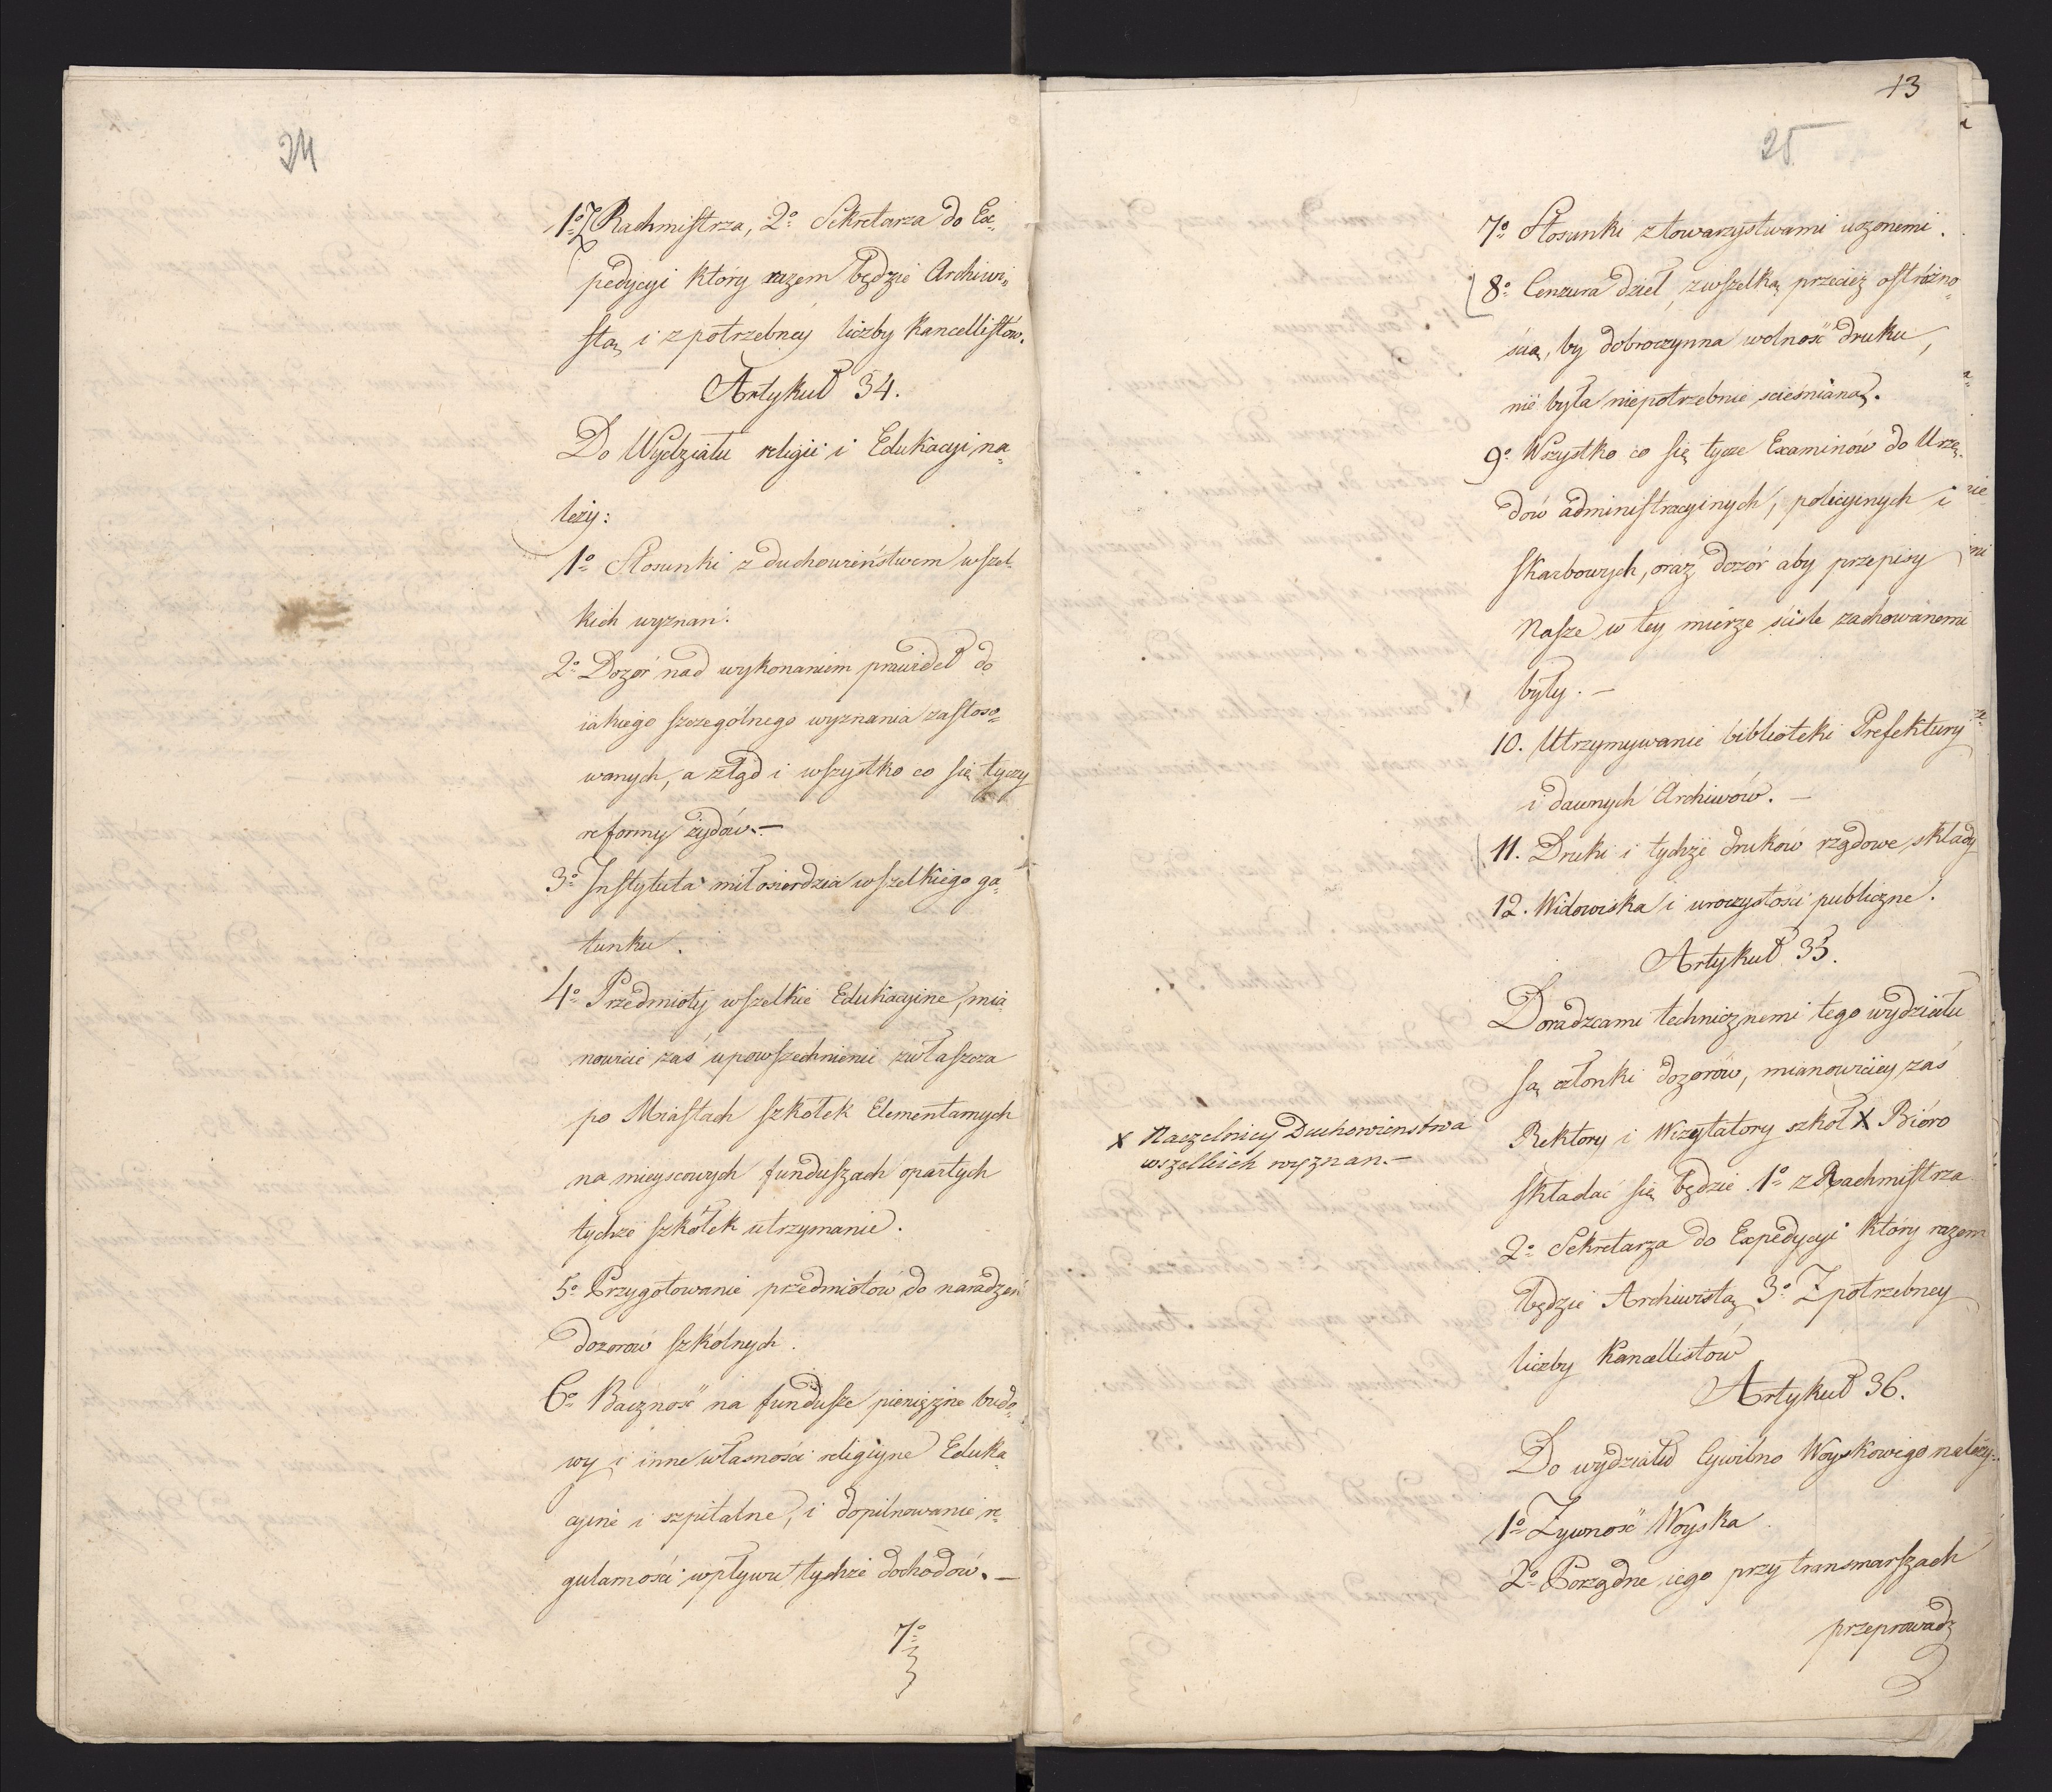 24
1º Z Rachmistrza, 2º Sekretarza do Ex-
pedycyi który razem będzie Archiwi-
stą i z potrzebney liczby Kancellistów.
Artykuł 34.
Do Wydziału religii i Edukacyi na-
leży:
1º Stosunki z duchowieństwem wszel-
kich wyznań.
2º Dozór nad wykonaniem prawideł do
iakiego szczególnego wyznania zastoso-
wanych, a ztąd i wszystko co się tyczy
reformy żydów.—
3º Instytuta miłosierdzia wszelkiego ga-
tunku.
4º Przedmioty wszelkie Edukacyine, mia-
nowicie zaś upowszechnienie zwłaszcza
po Miastach szkółek Elementarnych
na mieyscowych funduszach opartych
tychże szkółek utrzymanie.
5º Przygotowanie przedmiotów do naradzeń
dozorów szkólnych.
6º Baczność na fundusze pieniężne budo-
wy i inne własności religiyne Eduka-
cyine i szpitalne, i dopilnowanie re-
gularności wpływu tychże dochodów.—
7º
13
25
7º Stosunki z towarzystwami uczonemi.
8º Cenzura dzieł, z wszelką przecież ostrożno-
ścią, by dobroczynna wolność druku,
nie była niepotrzebnie scieśnianą.
9º Wszystko co się tycze Examinów do Urzę-
dów administracyinych, policyinych i
skarbowych, oraz dozór aby przepisy
Nasze w tey mierze ściśle zachowanemi
były.—
10. Utrzymywanie biblioteki Prefektury
i dawnych Archiwów.—
11. Druki i tychże druków rządowe składy
12. Widowiska i uroczystości publiczne.
Artykuł 35.
Doradzcami technicznemi tego wydziału
są członki dozorów, mianowiciey zaś
Rektory i Wizytatory szkół X Bióro
X Naczelnicy Duchowienstwa
wszelkich wyznan.—
składać się będzie 1º z Rachmistrza
2º Sekretarza do Expedycyi który razem
będzie Archiwistą 3º Z potrzebney
liczby Kancellistów
Artykuł 36.
Do wydziału Cywilno Woyskowego należy:
1º Żywność Woyska.
2º Porządne iego przy transmarszach
przeprowadz